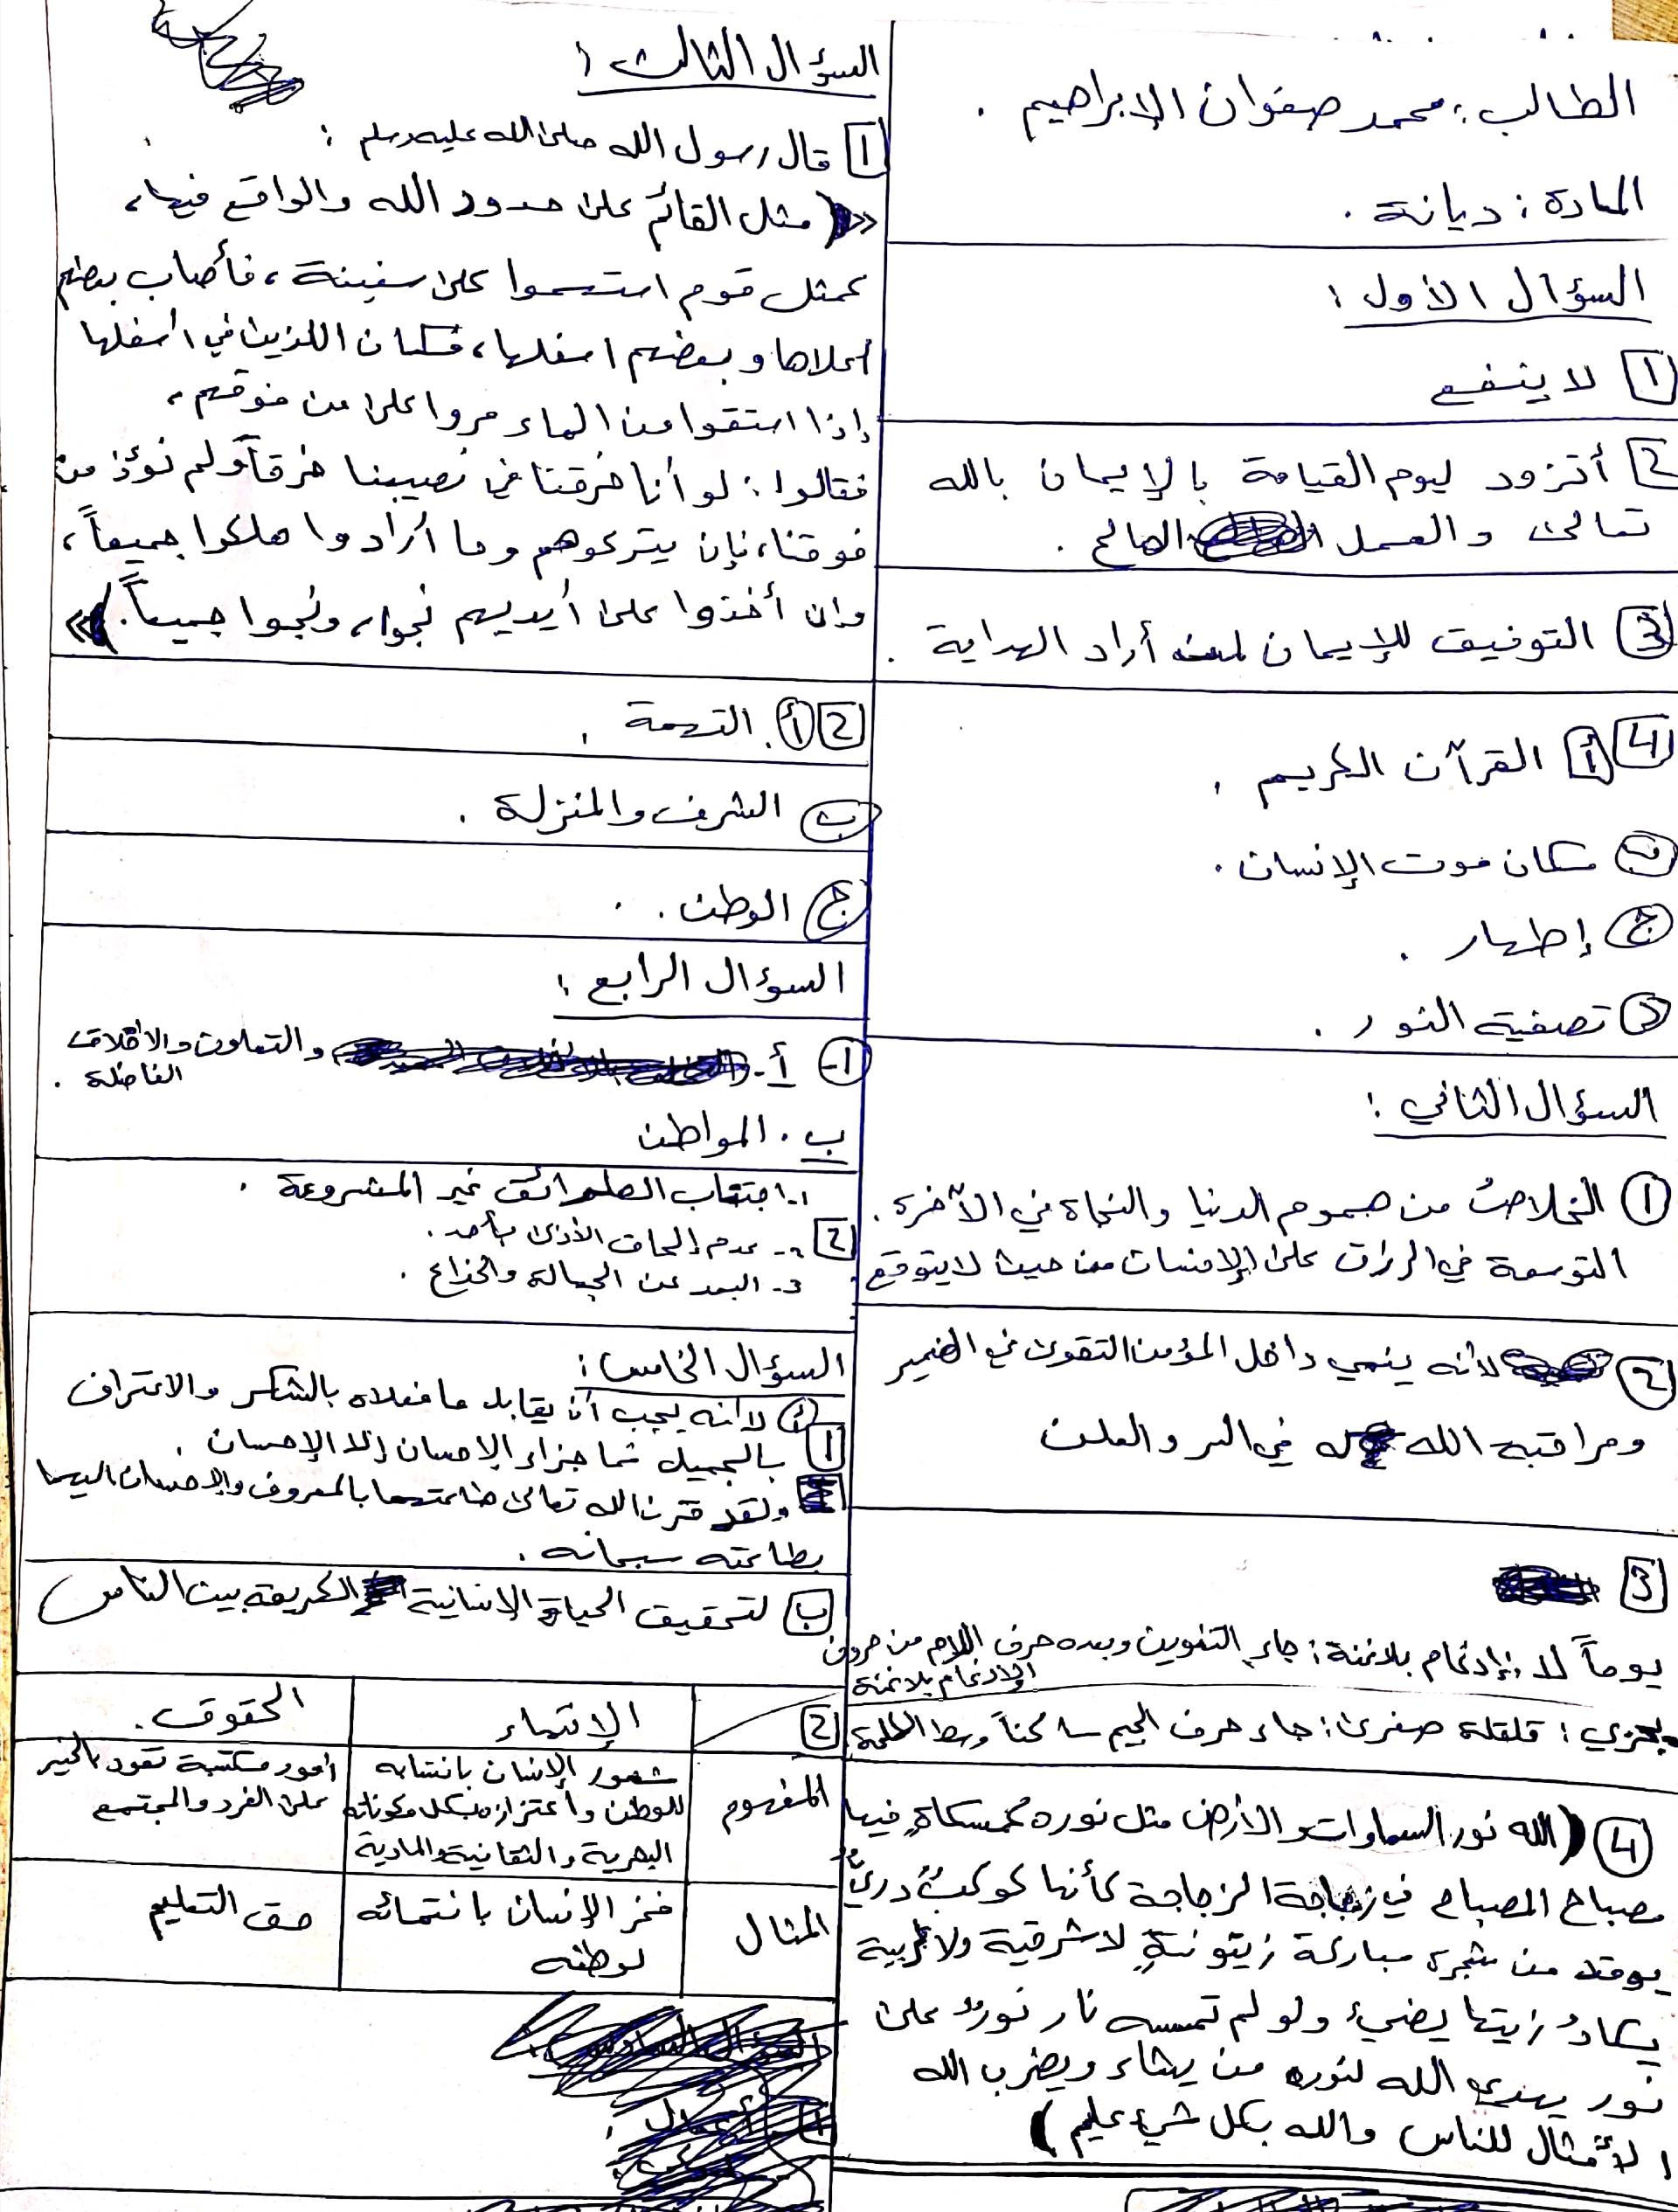 الطالب: محمد صفوان الإبراهيم.
المادة: ديانة.
السؤال الأول:
1 لا ينفع
2 أتزود ليوم القيامة بالإيمان بالله
تعالى والعمل الصالح.
3 التوفيق للإيمان لمن أراد الهداية.
4 أ القرآن الكريم.
ب مكان موت الإنسان.
ج إظهار.
د تصفية النور.
السؤال الثاني:
1 الخلاص من هموم الدنيا والنجاة في الآخرة.
التوسعة في الرزق على الإنسان من حيث لا يتوقع.
2 لأنه ينمي داخل المؤمن التقوى في الضمير
ومراقبة الله في السر والعلن
3
يوماً لا: إدغام بلاغنة: جاء التنوين وبعده حرف اللام من حروف
الإدغام بلاغنة
يجزي: قلقلة صغرى: جاء حرف الجيم ساكناً وسط الكلمة
4 (الله نور السماوات والأرض مثل نوره كمسكاةٍ فيها
مصباح المصباح في زجاجة الزجاجة كأنها كوكبٌ دريٌّ
يوقد من شجرة مباركة زيتونةٍ لا شرقية ولا غربية
يكادُ زيتها يضيء ولو لم تمسسه نار نورٌ على
نور يهدي الله لنوره من يشاء ويضرب الله
الأمثال للناس والله بكل شيء عليم)
السؤال الثالث:
1 قال رسول الله صلى الله عليه وسلم:
«(مثل القائم على حدود الله والواقع فيها،
كمثل قوم استهموا على سفينة، فأصاب بعضهم
أعلاها وبعضهم اسفلها، فكان اللذين في أسفلها
إذا استقوا من الماء مروا على من فوقهم،
فقالوا: لو أنا خرقنا في نصيبنا خرقاً ولم نؤذ من
فوقنا، فإن يتركوهم وما أرادوا هلكوا جميعاً،
وإن أخذوا على أيديهم نجوا، ونجوا جميعاً.)»
2 أ. القسمة.
ب الشرف والمنزلة.
ج الوطن.
السؤال الرابع:
1- أ- والتعاون والأخلاق
الفاضلة.
ب. المواطن
1- اجتناب الطرائق غير المشروعة.
2 2- عدم إلحاق الأذى بأحد.
3- البعد عن الجهالة والخداع.
السؤال الخامس:
أ لأنه يجب أن يقابل ما فعلاه بالشكر والاعتراف
1 بالجميل فما جزاء الإحسان إلا الإحسان.
ولقد قرن الله تعالى طاعتهما بالمعروف والإحسان إليهما
بطاعته سبحانه.
ب لتحقيق الحياة الإنسانية الكريمة بين الناس
2 الإنتماء الحقوق.
المفهوم شعور الإنسان بانتسابه أمور مكتسبة تعود بالخير
للوطن وأعتزازه بكل مكوناته على الفرد والمجتمع
البشرية والثقافية والمادية
المثال فخر الإنسان بانتمائه حق التعليم
لوطنه